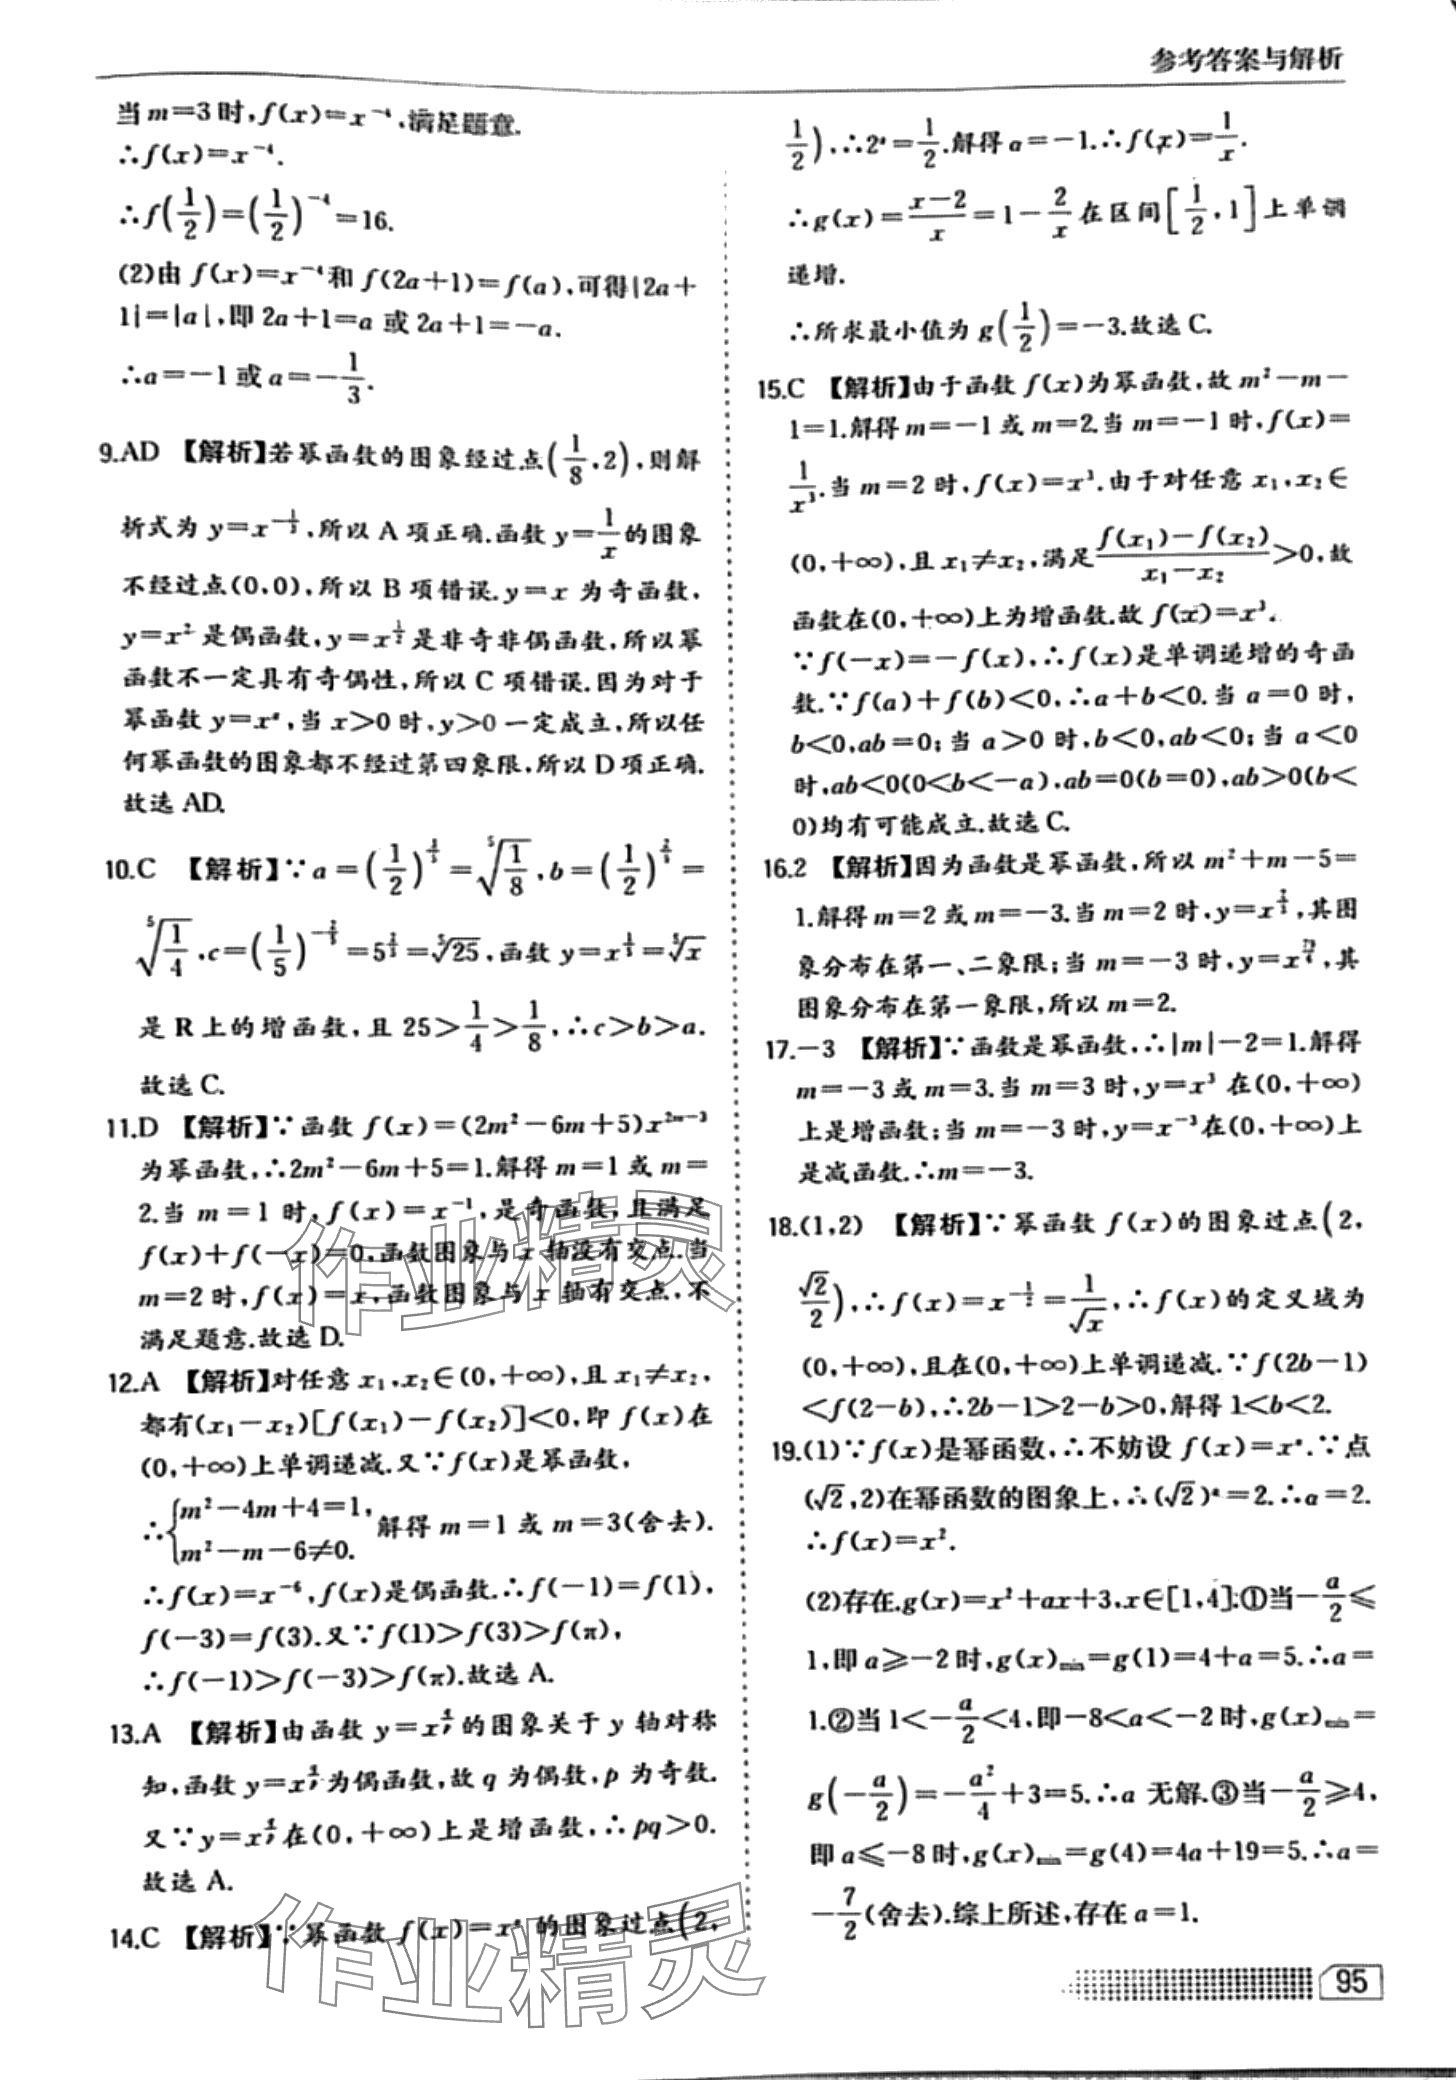 参考答案与解析
当 m=3 时,f(x)=x⁻⁴,满足题意.
∴f(x)=x⁻⁴.
∴f(1/2)=(1/2)⁻⁴=16.
(2)由 f(x)=x⁻⁴和 f(2a+1)=f(a),可得|2a+
1|=|a|,即 2a+1=a 或 2a+1=-a.
∴a=-1 或 a=-1/3.
9.AD 【解析】若幂函数的图象经过点(1/8,2),则解
析式为 y=x^(-1/3),所以 A 项正确.函数 y=1/x的图象
不经过点(0,0),所以 B 项错误.y=x 为奇函数,
y=x²是偶函数,y=x^(1/2)是非奇非偶函数,所以幂
函数不一定具有奇偶性,所以 C 项错误.因为对于
幂函数 y=xᵅ,当 x>0 时,y>0 一定成立,所以任
何幂函数的图象都不经过第四象限,所以 D 项正确.
故选 AD.
10.C 【解析】∵a=(1/2)^(3/5)=⁵√(1/8),b=(1/2)^(2/5)=
⁵√(1/4),c=(1/5)^(-2/5)=5^(2/5)=⁵√25,函数 y=x^(1/5)=⁵√x
是 R 上的增函数,且 25>1/4>1/8,∴c>b>a.
故选 C.
11.D 【解析】∵函数 f(x)=(2m²-6m+5)x^(2m-3)
为幂函数,∴2m²-6m+5=1.解得 m=1 或 m=
2.当 m=1 时,f(x)=x⁻¹,是奇函数,且满足
f(x)+f(-x)=0,函数图象与 x 轴没有交点.当
m=2 时,f(x)=x,函数图象与 x 轴有交点,不
满足题意.故选 D.
12.A 【解析】对任意 x₁,x₂∈(0,+∞),且 x₁≠x₂,
都有(x₁-x₂)[f(x₁)-f(x₂)]<0,即 f(x)在
(0,+∞)上单调递减.又∵f(x)是幂函数,
∴{m²-4m+4=1,
m²-m-6≠0. 解得 m=1 或 m=3(舍去).
∴f(x)=x⁻⁶,f(x)是偶函数.∴f(-1)=f(1),
f(-3)=f(3).又∵f(1)>f(3)>f(π),
∴f(-1)>f(-3)>f(π).故选 A.
13.A 【解析】由函数 y=x^(q/p)的图象关于 y 轴对称
知,函数 y=x^(q/p)为偶函数,故 q 为偶数,p 为奇数.
又∵y=x^(q/p)在(0,+∞)上是增函数,∴pq>0.
故选 A.
14.C 【解析】∵幂函数 f(x)=xᵅ的图象过点(2,
1/2),∴2ᵅ=1/2.解得 α=-1.∴f(x)=1/x.
∴g(x)=(x-2)/x=1-2/x在区间[1/2,1]上单调
递增.
∴所求最小值为 g(1/2)=-3.故选 C.
15.C 【解析】由于函数 f(x)为幂函数,故 m²-m-
1=1.解得 m=-1 或 m=2.当 m=-1 时,f(x)=
1/x³.当 m=2 时,f(x)=x³.由于对任意 x₁,x₂∈
(0,+∞),且 x₁≠x₂,满足(f(x₁)-f(x₂))/(x₁-x₂)>0,故
函数在(0,+∞)上为增函数.故 f(x)=x³.
∵f(-x)=-f(x),∴f(x)是单调递增的奇函
数.∵f(a)+f(b)<0,∴a+b<0.当 a=0 时,
b<0,ab=0;当 a>0 时,b<0,ab<0;当 a<0
时,ab<0(0<b<-a),ab=0(b=0),ab>0(b<
0)均有可能成立.故选 C.
16.2 【解析】因为函数是幂函数,所以 m²+m-5=
1.解得 m=2 或 m=-3.当 m=2 时,y=x^(2/3),其图
象分布在第一、二象限;当 m=-3 时,y=x,其
图象分布在第一象限,所以 m=2.
17.-3 【解析】∵函数是幂函数,∴|m|-2=1.解得
m=-3 或 m=3.当 m=3 时,y=x³ 在(0,+∞)
上是增函数;当 m=-3 时,y=x⁻³在(0,+∞)上
是减函数.∴m=-3.
18.(1,2) 【解析】∵幂函数 f(x)的图象过点(2,
√2/2),∴f(x)=x^(-1/2)=1/√x,∴f(x)的定义域为
(0,+∞),且在(0,+∞)上单调递减.∵f(2b-1)
<f(2-b),∴2b-1>2-b>0,解得 1<b<2.
19.(1)∵f(x)是幂函数,∴不妨设 f(x)=xᵅ.∵点
(√2,2)在幂函数的图象上,∴(√2)ᵅ=2.∴α=2.
∴f(x)=x².
(2)存在.g(x)=x²+ax+3,x∈[1,4]:①当-a/2≤
1,即 a≥-2 时,g(x)min=g(1)=4+a=5.∴a=
1.②当 1<-a/2<4,即-8<a<-2 时,g(x)min=
g(-a/2)=-a²/4+3=5.∴a 无解.③当-a/2≥4,
即 a≤-8 时,g(x)min=g(4)=4a+19=5.∴a=
-7/2(舍去).综上所述,存在 a=1.
95
作业精灵
作业精灵